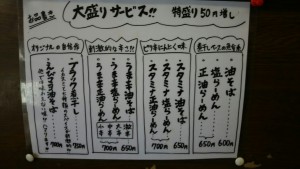 お品書き
大盛りサービス!!
特盛り50円増し
オリジナルの自信作
ブラック煮干し
750円
えびマヨ油そば
750円
刺激的な辛さ!!
うま辛油そば
うま辛塩らーめん
うま辛正油らーめん
小辛
中辛
大辛
激辛
700円
650円
ピリ辛にんにく味
スタミナ油そば
スタミナ塩らーめん
スタミナ正油らーめん
700円
650円
煮干しベースの
油そば
塩らーめん
正油らーめん
650円
600円